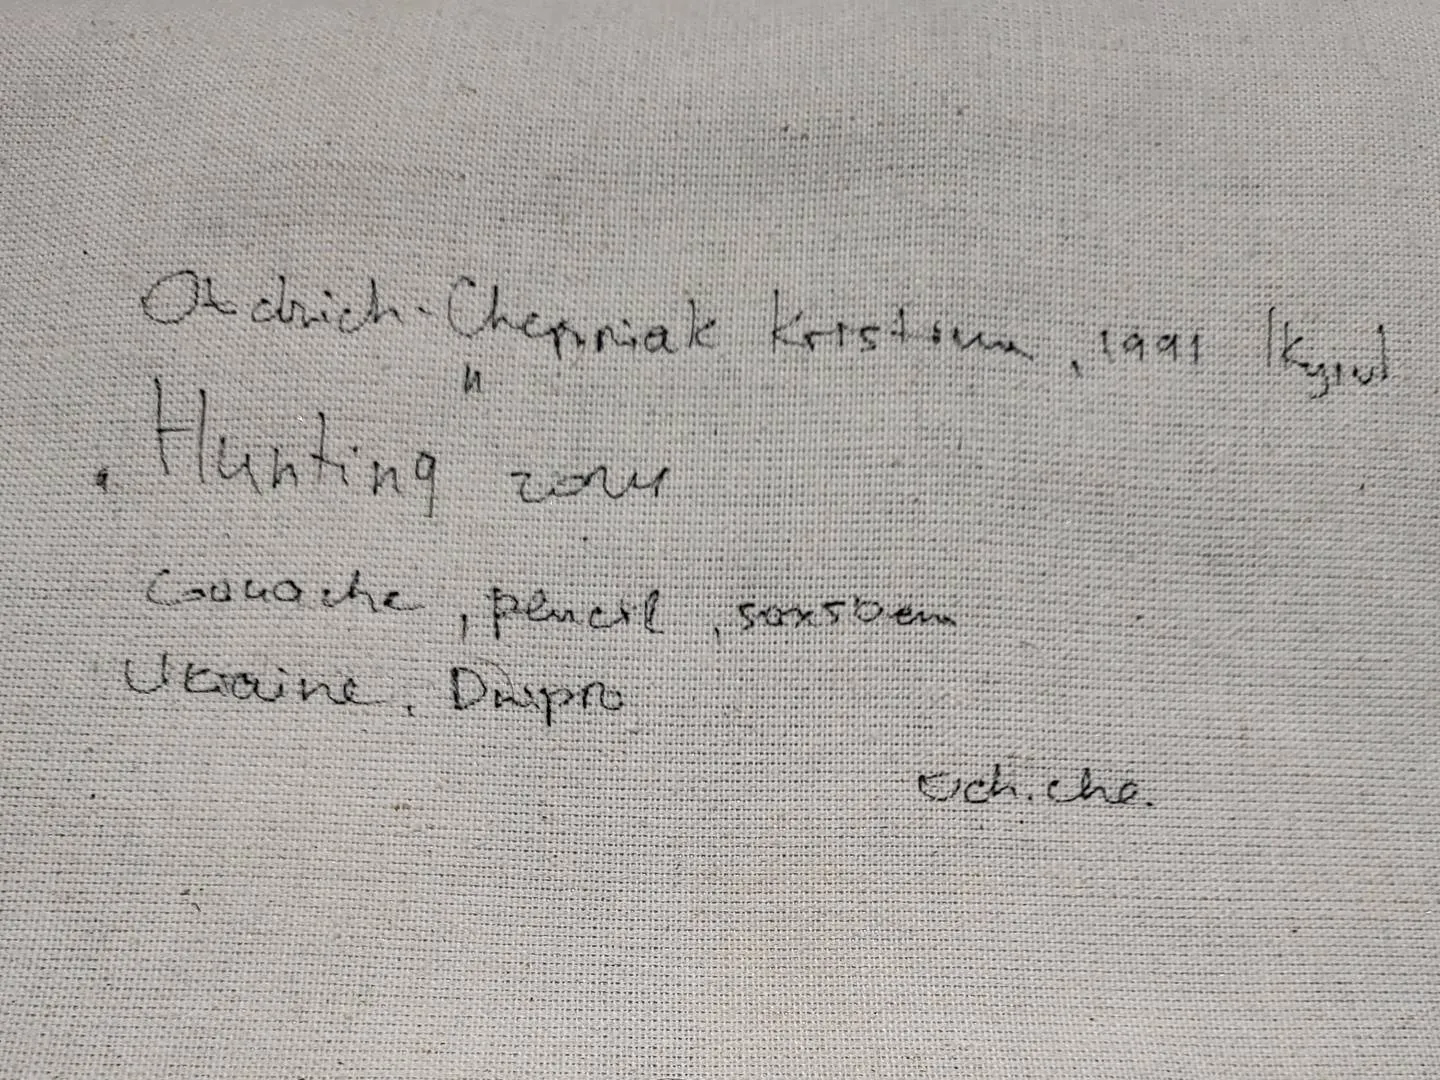 Oldrich-Chepniak Kristina, 1991 [Kyiv]
"Hunting
Gouache, pencil, 50x50cm
Ukraine, Dnipro
och.che.